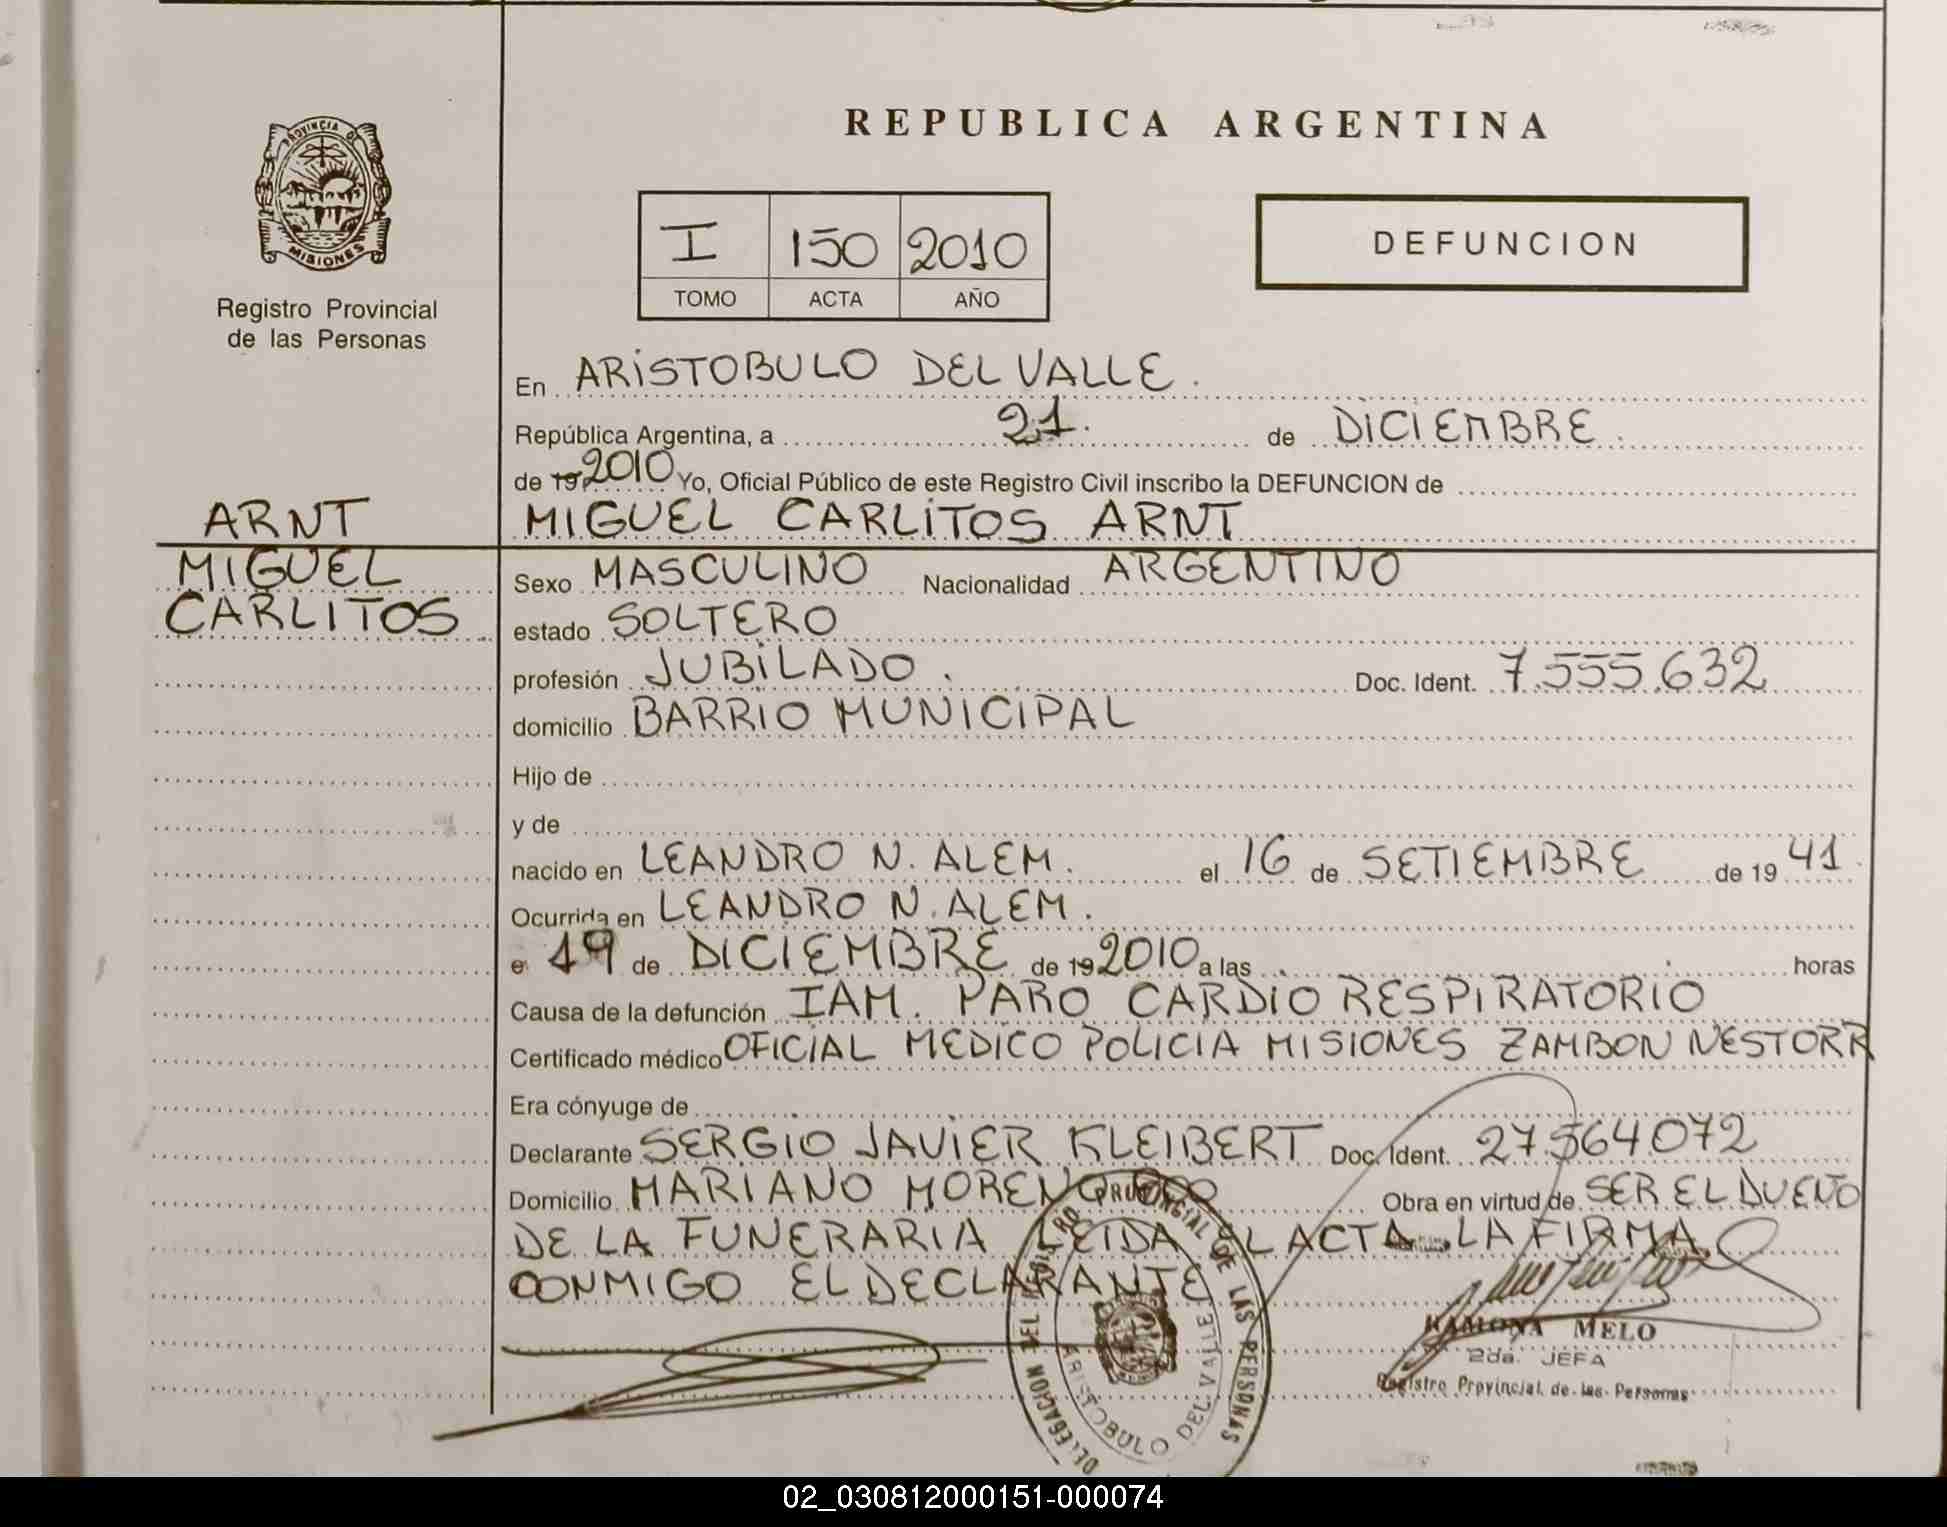 REPUBLICA ARGENTINA
PROVINCIA DE
MISIONES
Registro Provincial
de las Personas
I 150 2010
TOMO ACTA AÑO
DEFUNCION
En ARISTOBULO DEL VALLE.
República Argentina, a 21. de DICIEMBRE.
de 19 2010 Yo, Oficial Público de este Registro Civil inscribo la DEFUNCION de
ARNT MIGUEL CARLITOS ARNT
MIGUEL Sexo MASCULINO Nacionalidad ARGENTINO
CARLITOS estado SOLTERO
profesión JUBILADO. Doc. Ident. 7.555.632
domicilio BARRIO MUNICIPAL
Hijo de
y de
nacido en LEANDRO N. ALEM. el 16 de SETIEMBRE de 19 41
Ocurrida en LEANDRO N. ALEM.
e 19 de DICIEMBRE de 19 2010 a las horas
Causa de la defunción IAM. PARO CARDIO RESPIRATORIO
Certificado médico OFICIAL MEDICO POLICIA MISIONES ZAMBON NESTOR R
Era cónyuge de
Declarante SERGIO JAVIER KLEIBERT Doc. Ident. 27564072
Domicilio MARIANO MORENO Obra en virtud de SER EL DUEÑO
DE LA FUNERARIA LEIDA EL ACTA LA FIRMA
CONMIGO EL DECLARANTE
RAMONA MELO
2da. JEFA
Registro Provincial de las Personas
DELEGACION DEL REGISTRO PROVINCIAL DE LAS PERSONAS
ARISTOBULO DEL VALLE
02_030812000151-000074